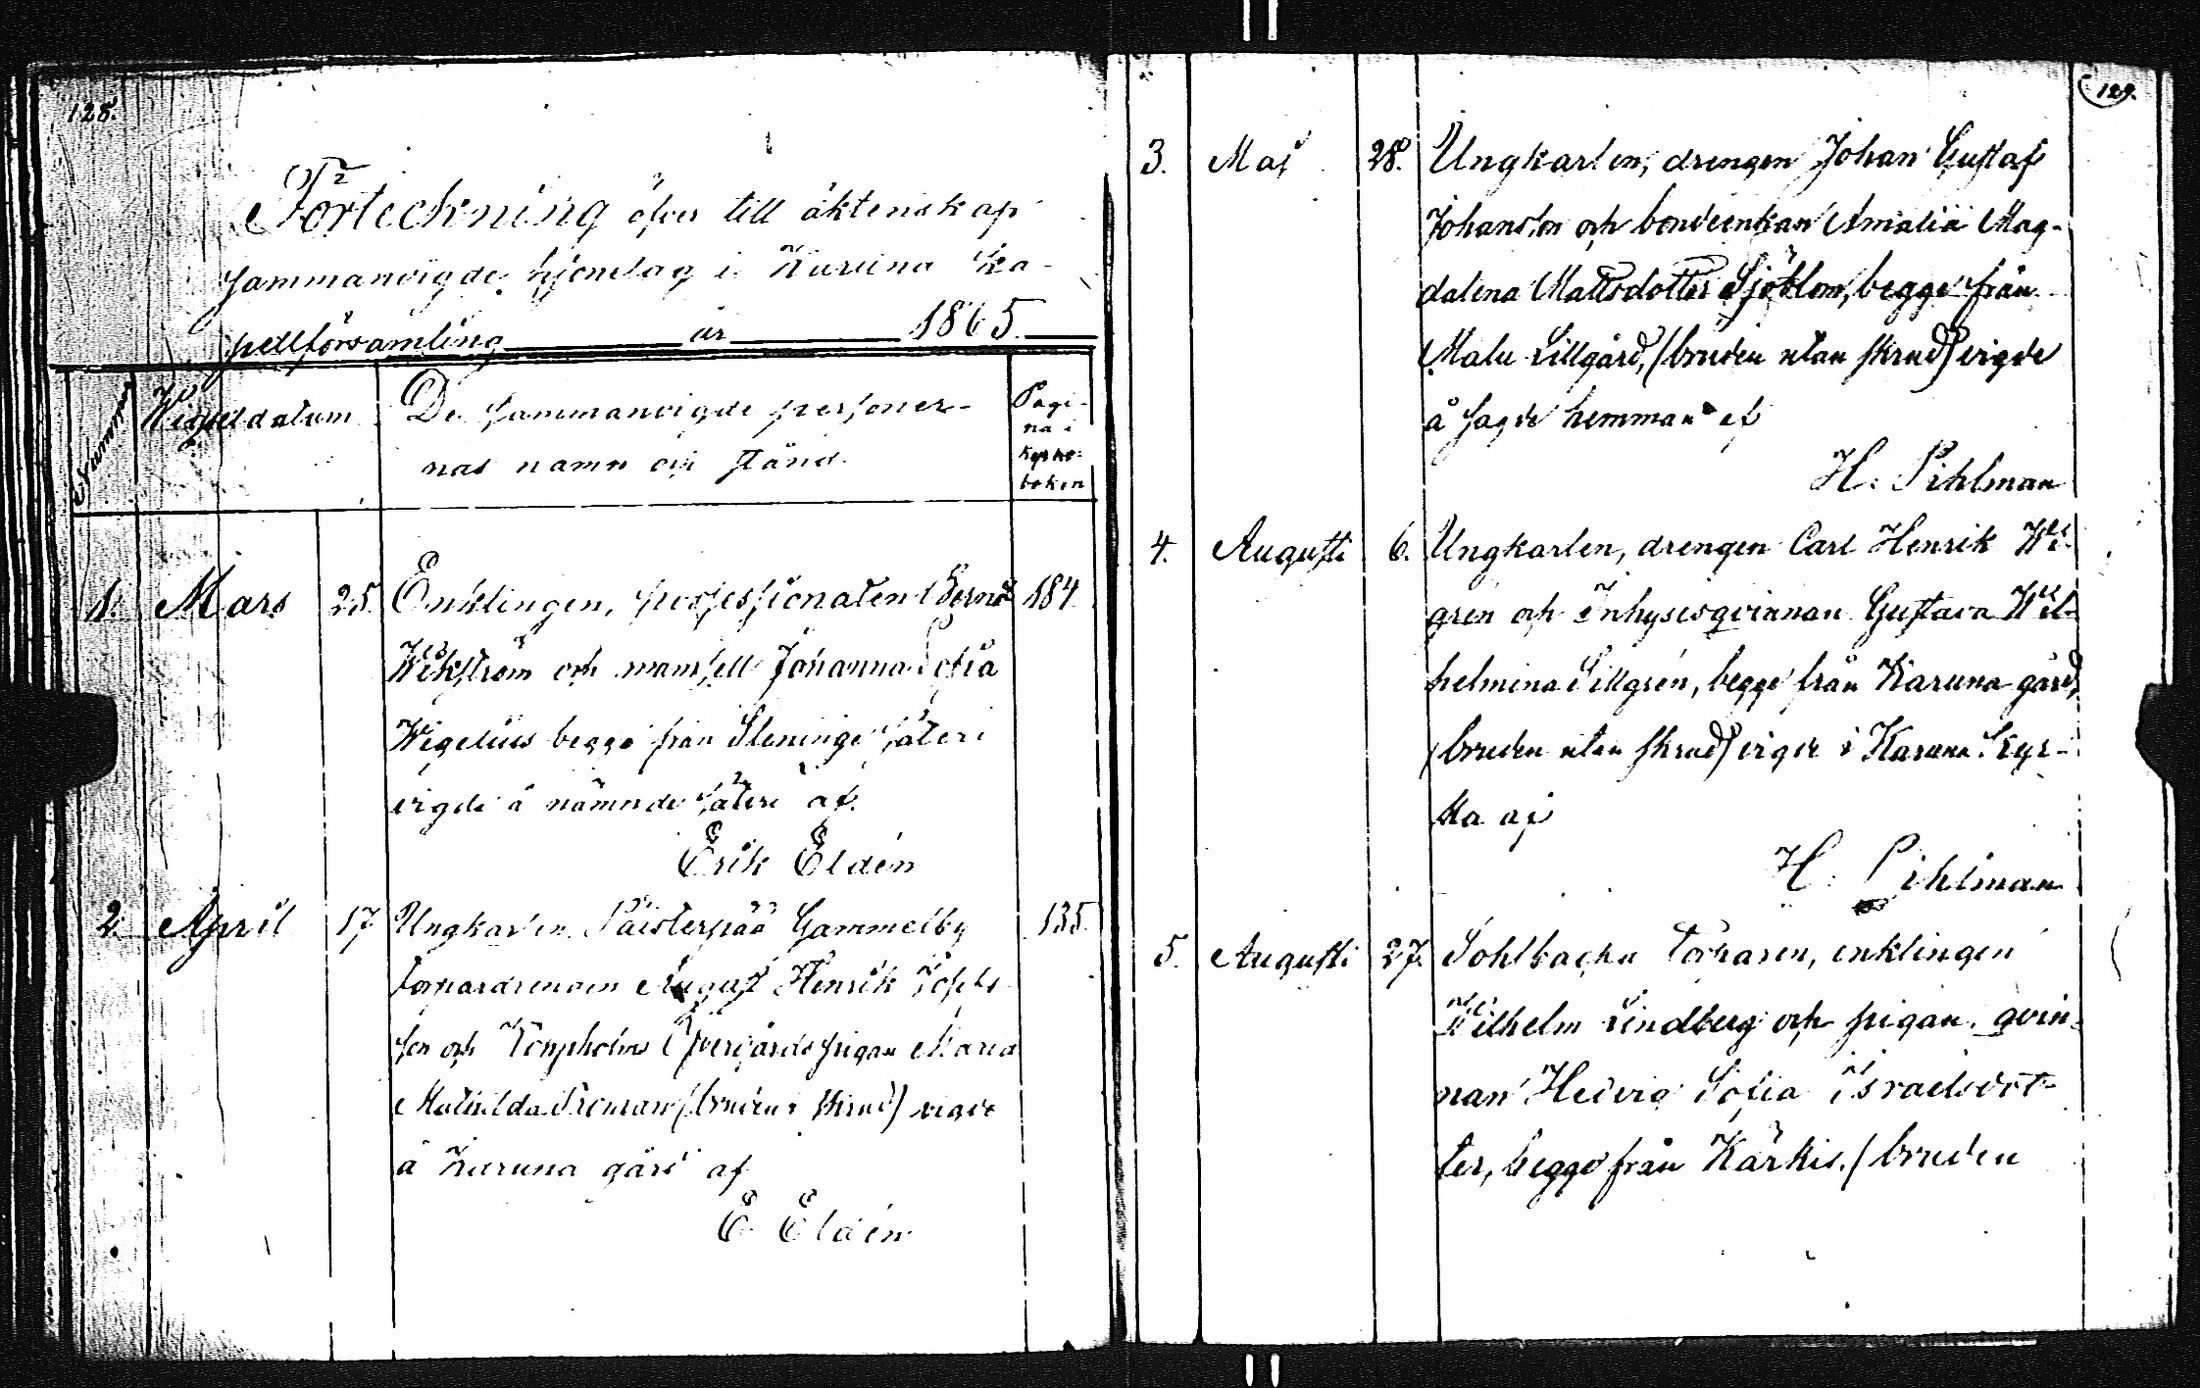 128.
Förteckning öfver till äktenskap
sammanvigde hjonelag i Karuna Ka-
pellförsamling år 1865.
Nummer
Vigseldatum
De sammanvigde personer-
nas namn och stånd.
Pagi-
na i
Kyrko-
boken
1. Mars 25. Enklingen, professionaten Bernd 184
Wikström och mamsell Johanna Sofia
Wigelius begge från Sleninge säteri
vigde å nämnde säteri af.
Erik Eldén
2. April 17 Ungkarlen Päisterpää Gammelby 135.
August Henrik
son och Öfvergårds pigan Maria
Mathilda (bruden i skrud) vigde
å Karuna gård af
E. Eldén
129.
3. Maj 28. Ungkarlen, drengen Johan Gustaf
Johansson och bondeenkan Amalia Mag-
dalena Mattsdotter Sjöblom, begge från
Malu Lillgård, (bruden utan skrud) vigde
å sagde hemman af
H. Pihlman
4. Augusti 6. Ungkarlen, drengen Carl Henrik Wi-
gren och Inhysesqvinnan Gustava Wil-
helmina Sillgrén, begge från Karuna gård,
(bruden utan skrud) vigde i Karuna Kyr-
ka af
H. Pihlman
5. Augusti 27. Sohlbacka torparen, enklingen
Wilhelm Lindberg och pigan, qvin-
nan Hedvig Sofia Israelsdot-
ter, begge från Kärkis. (bruden